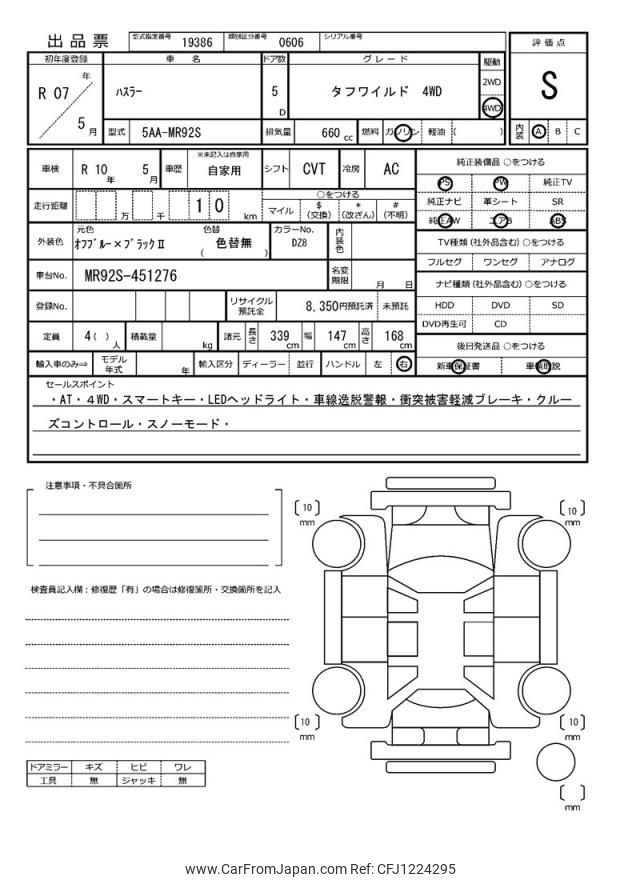 出品票
型式指定番号 19386 類別区分番号 0606 シリアル番号
評価点
S
内装 A B C
初年度登録 車名 ドア数 グレード 駆動
R 07 年 5 月
ハスラー 5 D タフワイルド 4WD
2WD
4WD
型式 5AA-MR92S 排気量 660 cc 燃料 ガソリン 軽油 ( )
車検 R 10 年 5 月 車歴 ※未記入は自家用 自家用 シフト CVT 冷房 AC
走行距離 万 千 1 0 km
○をつける
マイル $ (交換) * (改ざん) # (不明)
外装色 元色 オフブルー×ブラックⅡ 色替 ( 色替無 ) カラーNo. DZ8 内装色
車台No. MR92S-451276 名変期限 月 日
登録No. リサイクル預託金 8,350円預託済 未預託
定員 4( ) 人 積載量 kg 諸元 長さ 339 cm 幅 147 cm 高さ 168 cm
輸入車のみ⇒ モデル年式 年 輸入区分 ディーラー 並行 ハンドル 左 右
純正装備品 ○をつける
PS PW 純正TV
純正ナビ 革シート SR
純正AW エアB ABS
TV種類 (社外品含む) ○をつける
フルセグ ワンセグ アナログ
ナビ種類 (社外品含む) ○をつける
HDD DVD SD
DVD再生可 CD
後日発送品 ○をつける
新車保証書 車輌取説
セールスポイント
・AT・4WD・スマートキー・LEDヘッドライト・車線逸脱警報・衝突被害軽減ブレーキ・クルー
ズコントロール・スノーモード・
注意事項・不具合箇所
検査員記入欄：修復歴「有」の場合は修復箇所・交換箇所を記入
〔10〕mm
〔10〕mm
〔10〕mm
〔10〕mm
〔 〕mm
ドアミラー キズ ヒビ ワレ
工具 無 ジャッキ 無
www.CarFromJapan.com Ref: CFJ1224295